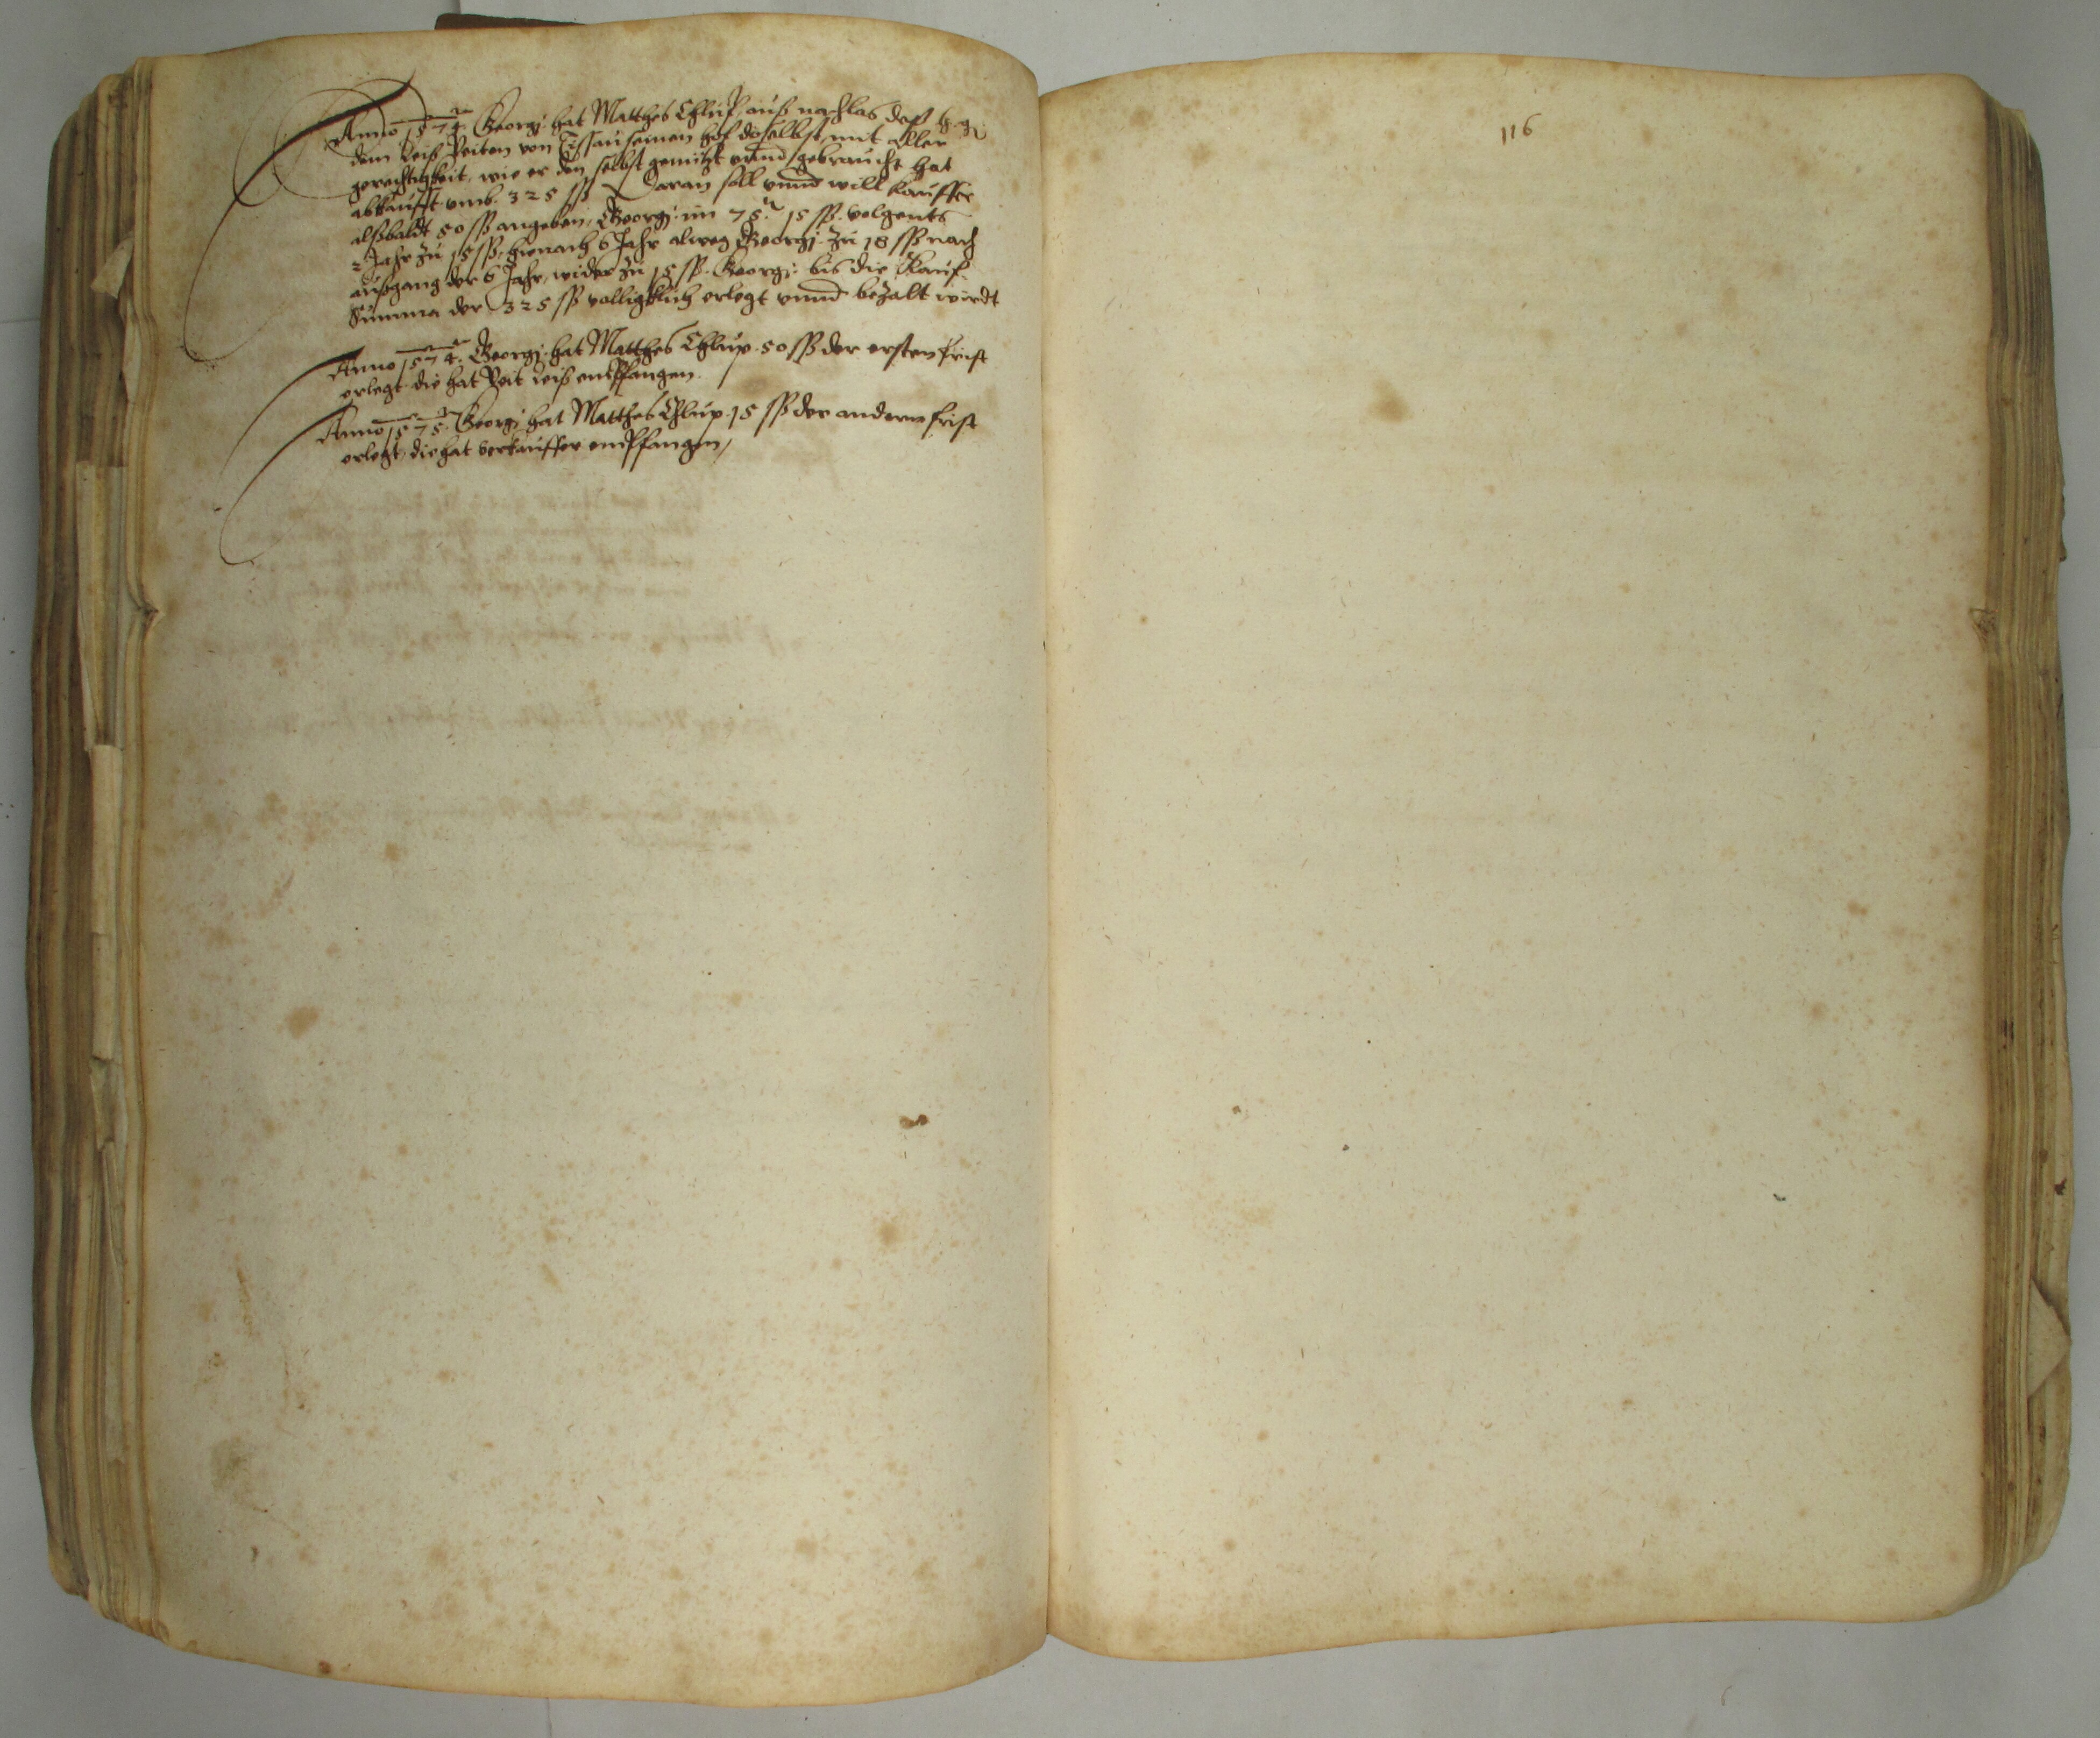 Anno 1574. Georgj hat Matthes Chlup auß nachlas deß h. g.
dem Veiß Veiten von Tissau seinen hof doselbst, mit aller
gerechtigkeit, wie er den selbst genützt vnnd gebraucht hat
abkaufft vmb. 325 ss Daran soll vnnd will kauffer
alßbaldt 50 ss angeben, Georgj im 75. 15 ss. volgents
2 Jahr zu 15 ss, hienach 6 Jahr alweg Georgj zu 18 ss nach
außgang der 6 Jahr, wider zu 15 ss. Georgj. bis die Kauf
Summa der 325 ss volligklich erlegt vnnd bezalt wirdt
Anno 1574. Georgj. hat Matthes Chlup. 50 ss der ersten frist
erlegt die hat Veit Veiß entpfangen.
Anno 1575. Georgj hat Matthes Chlup. 15 ss der andern frist
erlegt, die hat verkauffer empfangen,
116